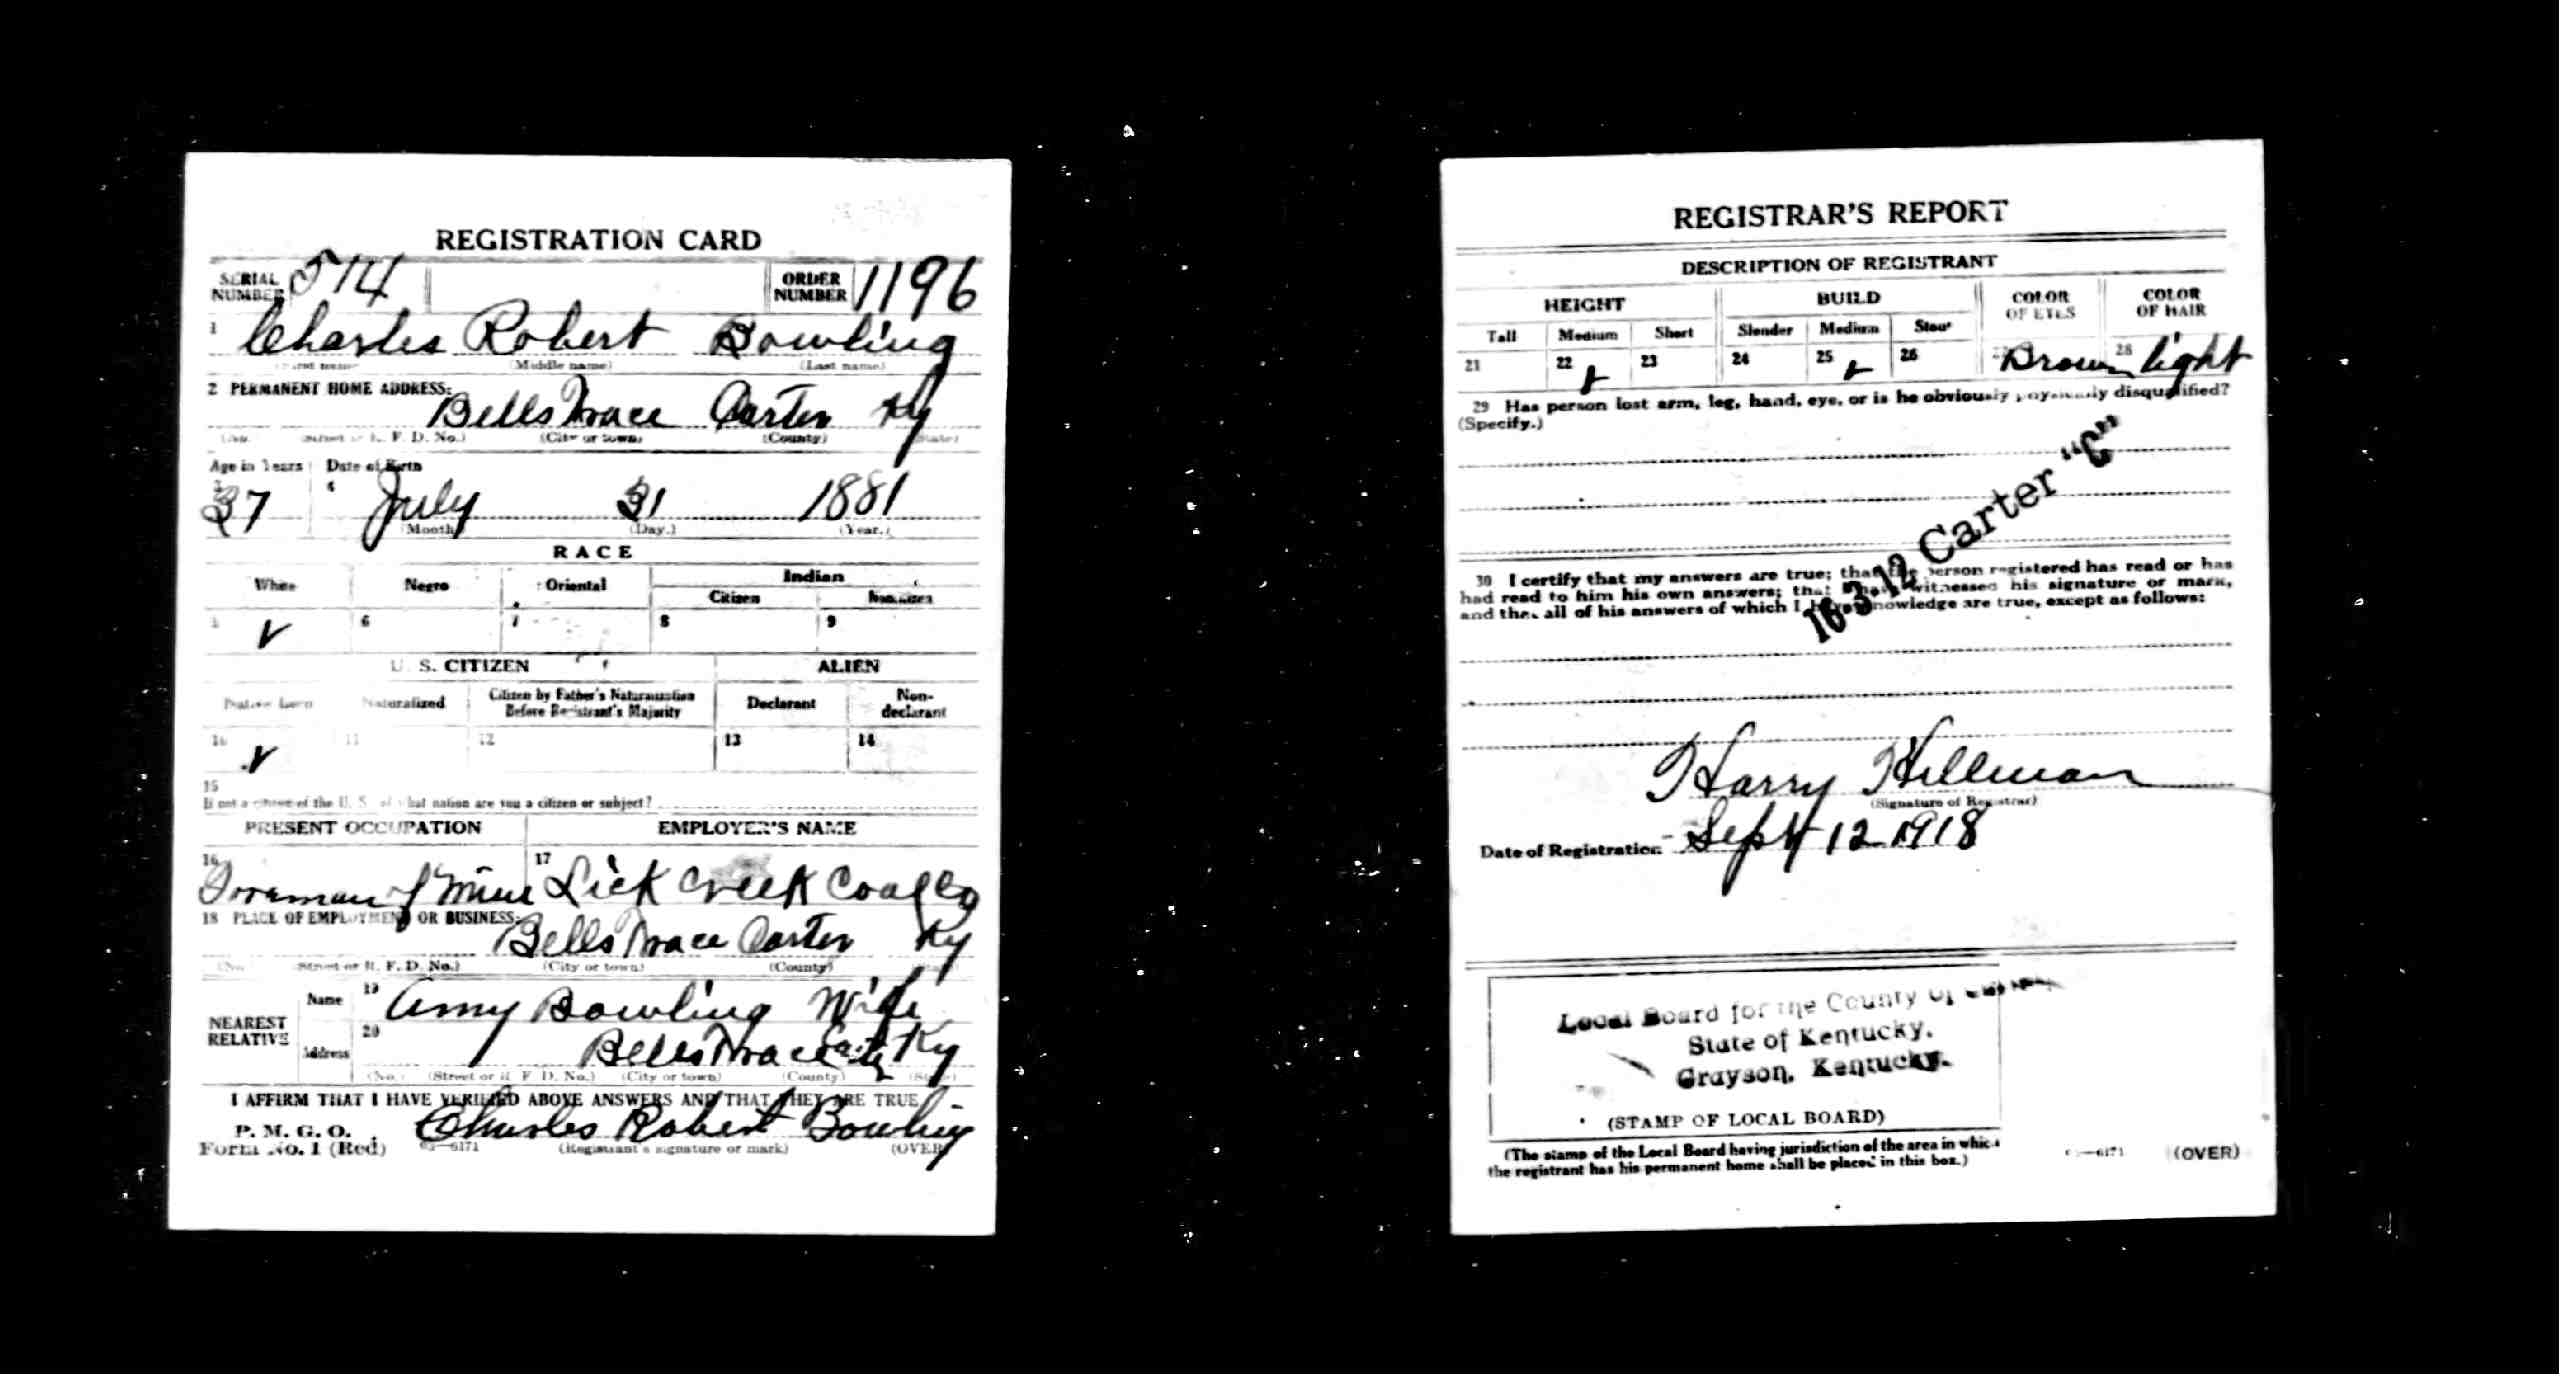 REGISTRATION CARD
SERIAL NUMBER 514 ORDER NUMBER 1196
1 Charles Robert Bowling
(First name) (Middle name) (Last name)
2 PERMANENT HOME ADDRESS:
Bells Trace Carter Ky
(No.) (Street or R. F. D. No.) (City or town) (County) (State)
Age in Years Date of Birth
3 37 4 July 31 1881
(Month) (Day.) (Year.)
RACE
White Negro Oriental Indian
Citizen Noncitizen
5 V 6 7 8 9
U. S. CITIZEN ALIEN
Native Born Naturalized Citizen by Father's Naturalization Before Registrant's Majority Declarant Non-declarant
10 V 11 12 13 14
15
If not a citizen of the U. S. of what nation are you a citizen or subject?
PRESENT OCCUPATION EMPLOYER'S NAME
16 Foreman of Mine 17 Lick Creek Coal Co
18 PLACE OF EMPLOYMENT OR BUSINESS:
Bells Trace Carter Ky
(No.) (Street or R. F. D. No.) (City or town) (County) (State)
NEAREST RELATIVE Name 19 Amy Bowling Wife
Address 20 Bells Trace Ky
(No.) (Street or R. F. D. No.) (City or town) (County) (State)
I AFFIRM THAT I HAVE VERIFIED ABOVE ANSWERS AND THAT THEY ARE TRUE
P. M. G. O.
Form No. 1 (Red) Charles Robert Bowling
03—6171 (Registrant's signature or mark) (OVER)
REGISTRAR'S REPORT
DESCRIPTION OF REGISTRANT
HEIGHT BUILD COLOR OF EYES COLOR OF HAIR
Tall Medium Short Slender Medium Stout
21 22 23 24 25 26 27 Brown 28 light
29 Has person lost arm, leg, hand, eye, or is he obviously physically disqualified?
(Specify.)
16 3 12 Carter "C"
30 I certify that my answers are true; that the person registered has read or has
had read to him his own answers; that I have witnessed his signature or mark,
and that all of his answers of which I have knowledge are true, except as follows:
Harry Hillman
(Signature of Registrar)
Date of Registration Sept 12 1918
Local Board for the County of
State of Kentucky.
Grayson, Kentucky.
(STAMP OF LOCAL BOARD)
(The stamp of the Local Board having jurisdiction of the area in which
the registrant has his permanent home shall be placed in this box.)
03—6171 (OVER)